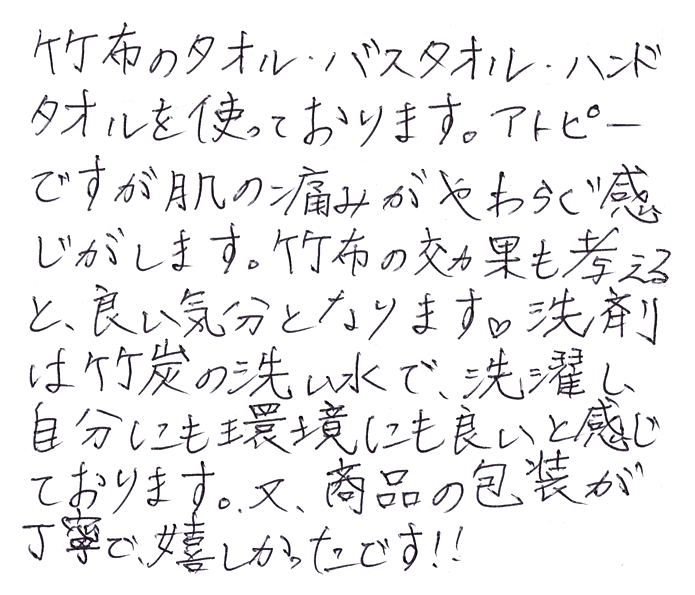 竹布のタオル・バスタオル・ハンド
タオルを使っております。アトピー
ですが肌の痛みがやわらぐ感
じがします。竹布の効果も考える
と、良い気分となります♡洗剤
は竹炭の洗い水で、洗濯し
自分にも環境にも良いと感じ
ております。又、商品の包装が
丁寧で、嬉しかったです!!